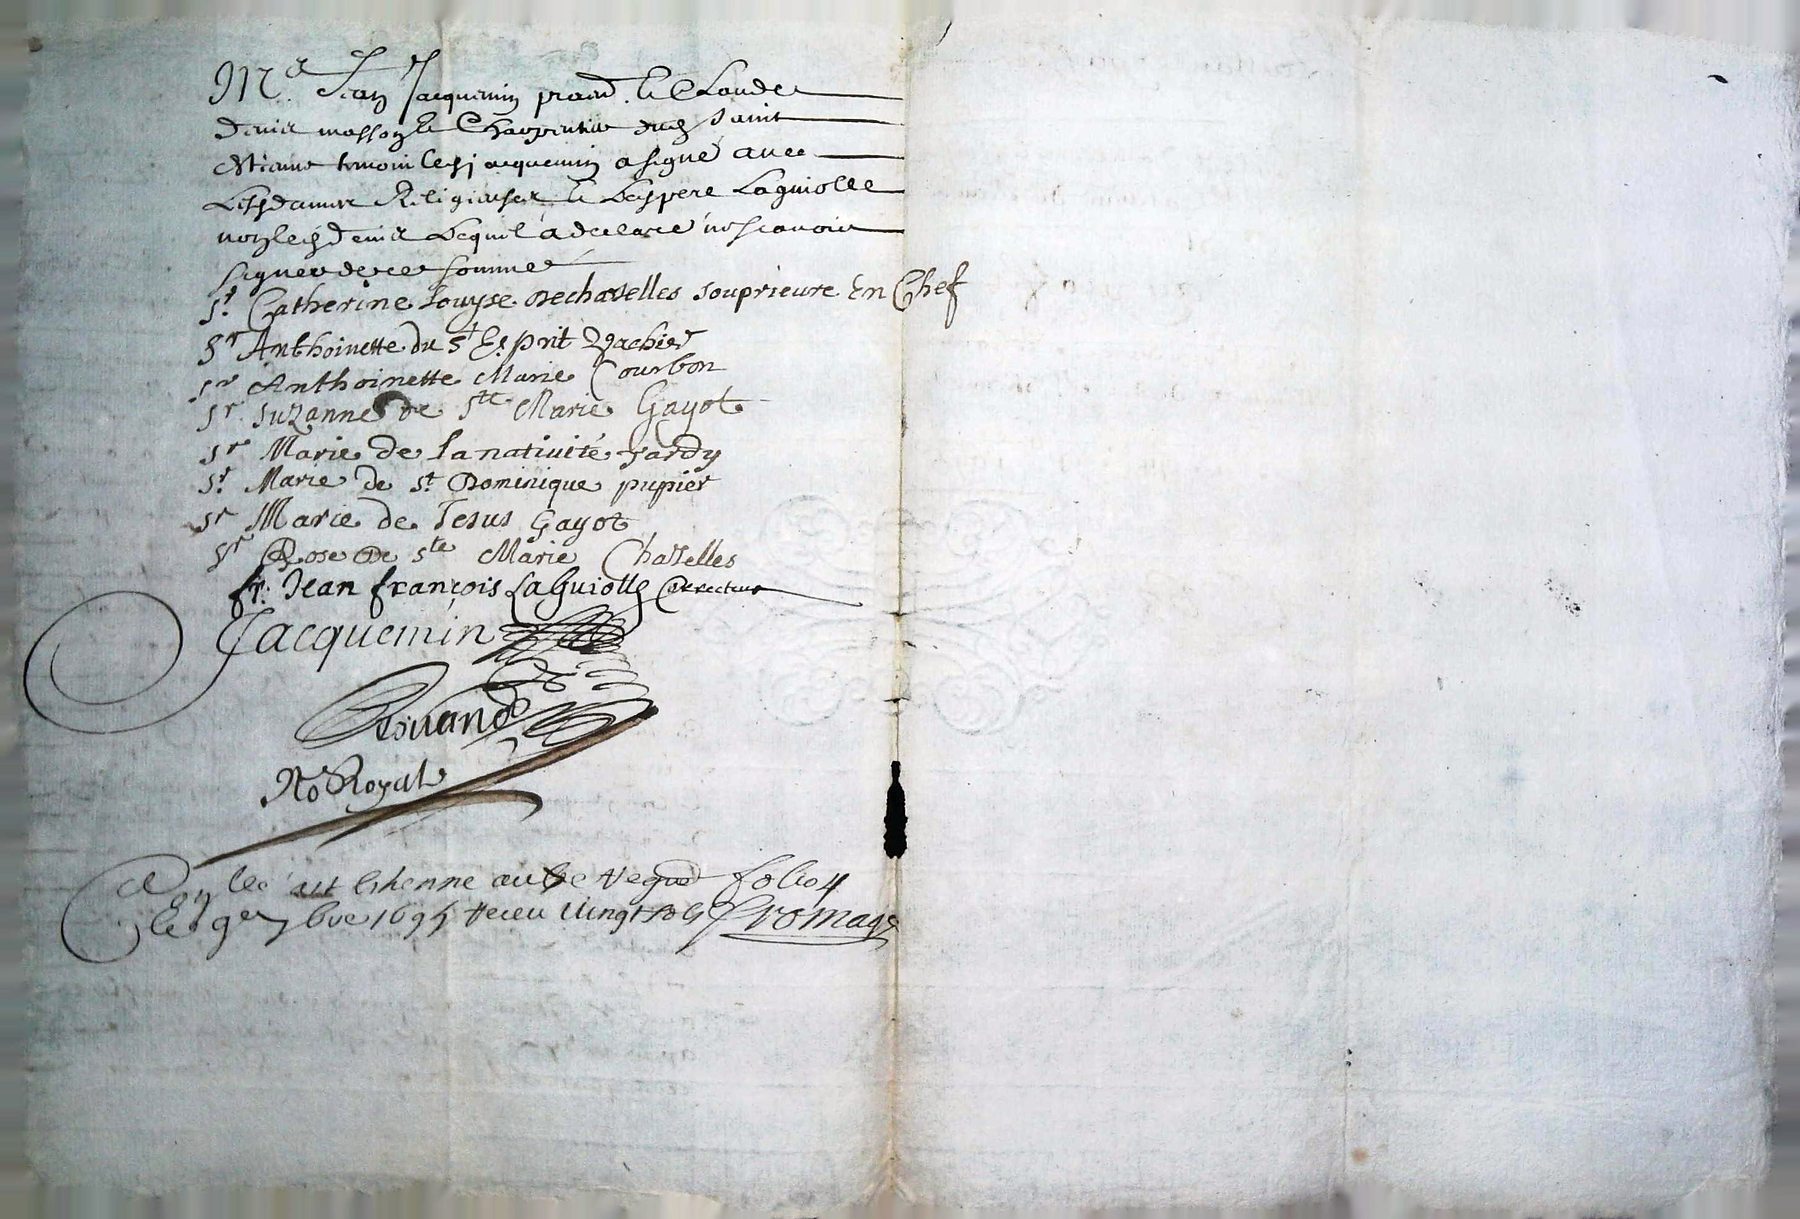 Mre Jean Jacquemin praticn. et Claude
Denis masson et Charpentier dud Saint
Estienne temoin led jacquemin a signé avec
Lesd dames Religieuses et Led pere Laguiolle
non led denis Lequel a declaré ne scavoir
signer de ce somme
sr Catherine Louyse de chaselles souprieure En Chef
sr Anthoinette du st Esprit Vachier
sr Anthoinette Marie Courbon
sr Suzanne de ste Marie Gayot
sr Marie de la nativité jardy
sr Marie de st Dominique pupier
sr Marie de Jesus Gayot
sr Rose De ste Marie Chaselles
fr. Jean françois LaGuiolle Directeur
Jacquemin
No Royal
a st Estienne au Regre folio 4
le 9e bre 1695 Receu Vingt sols Fromage